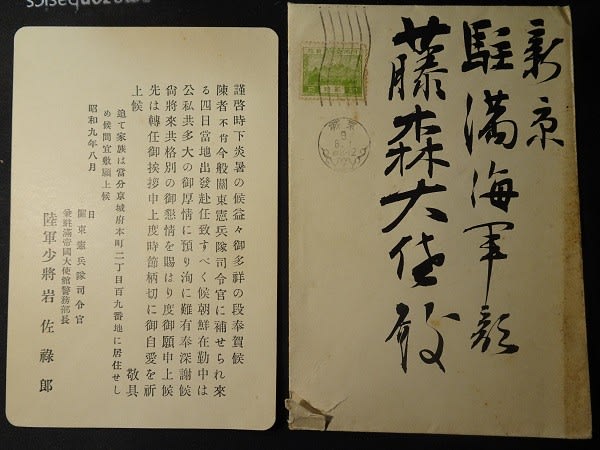 新京
駐満海軍部
藤森大佐殿
謹啓時下炎暑の候益々御多祥の段奉賀候
陳者不肖今般關東憲兵隊司令官に補せられ來
る四日當地出發赴任致すべく候朝鮮在勤中は
公私共多大の御厚情に預り洵に難有奉深謝候
尚將來共格別の御懇情を賜はり度御願申上候
先は轉任御挨拶申上度時節柄切に御自愛を祈
上候
敬具
追て家族は當分京城府本町二丁目百九番地に居住せし
め候間宜敷願上候
昭和九年八月 日
關東憲兵隊司令官
兼駐滿帝國大使館警務部長
陸軍少將岩佐祿郎